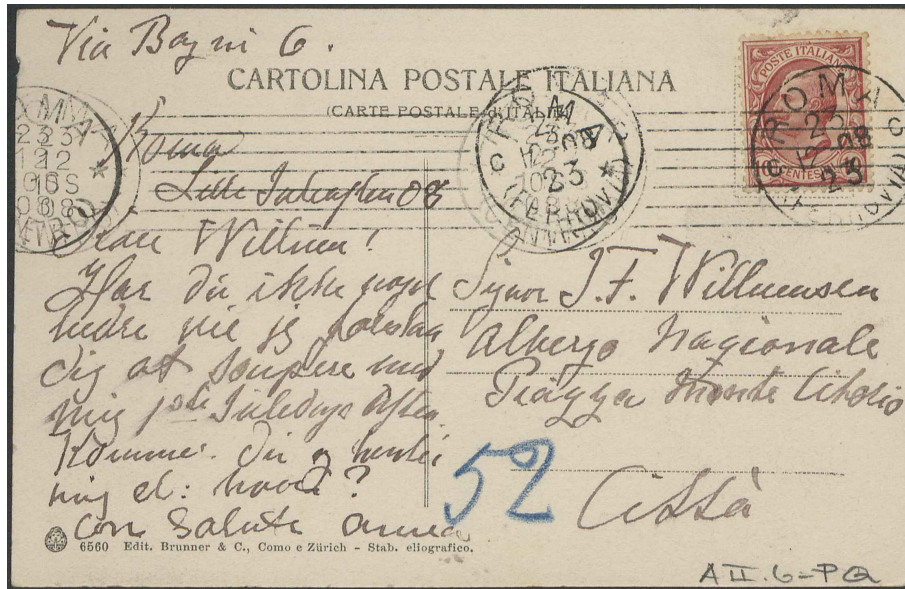 Via Bagni 6.
CARTOLINA POSTALE ITALIANA
(CARTE POSTALE D'ITALIE)
POSTE ITALIANE
ROMA
23
12 08
23
(FERROVIA)
Roma
Lille Juleaften 08
Kære Willum!
Har du ikke noget
bedre
dig at soupere med
mig Juledags Aften.
Kommer du og henter
mig el: hvad?
con salute anna
Signor J.F. Willumsen
Albergo Nazionale
Piazza Monte Citorio
Città
52
6560 Edit. Brunner & C., Como e Zürich - Stab. eliografico.
A II. 6-PQ